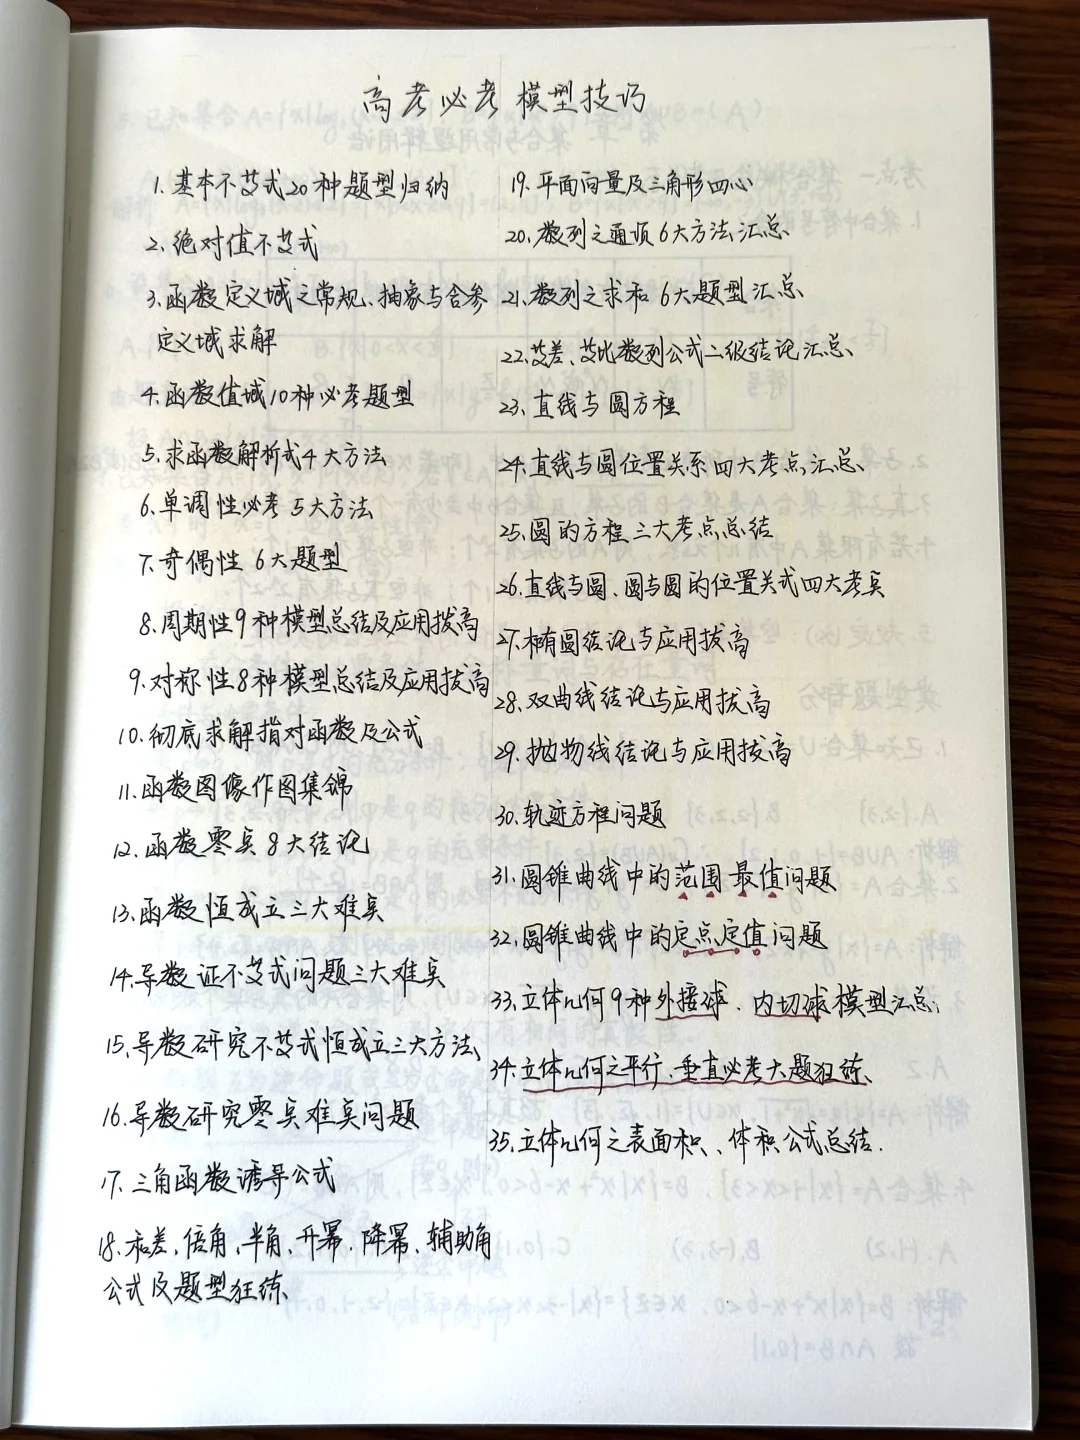 高考必考模型技巧
1. 基本不等式20种题型归纳
2. 绝对值不等式
3. 函数定义域之常规、抽象与含参
定义域求解
4. 函数值域10种必考题型
5. 求函数解析式4大方法
6. 单调性必考5大方法
7. 奇偶性6大题型
8. 周期性9种模型总结及应用拔高
9. 对称性8种模型总结及应用拔高
10. 彻底求解指对函数及公式
11. 函数图像作图集锦
12. 函数零点8大结论
13. 函数恒成立三大难点
14. 导数证不等式问题三大难点
15. 导数研究不等式恒成立三大方法、
16. 导数研究零点难点问题
17. 三角函数诱导公式
18. 和差、倍角、半角、升幂、降幂、辅助角
公式及题型狂练、
19. 平面向量及三角形四心
20. 数列之通项6大方法汇总
21. 数列之求和6大题型汇总、
22. 等差、等比数列公式二级结论汇总、
23. 直线与圆方程
24. 直线与圆位置关系四大考点汇总、
25. 圆的方程三大考点总结
26. 直线与圆、圆与圆的位置关式四大考点
27. 椭圆结论与应用拔高
28. 双曲线结论与应用拔高
29. 抛物线结论与应用拔高
30. 轨迹方程问题
31. 圆锥曲线中的范围最值问题
32. 圆锥曲线中的定点定值问题
33. 立体几何9种外接球、内切球模型汇总;
34. 立体几何之平行、垂直必考大题狂练、
35. 立体几何之表面积、体积公式总结.